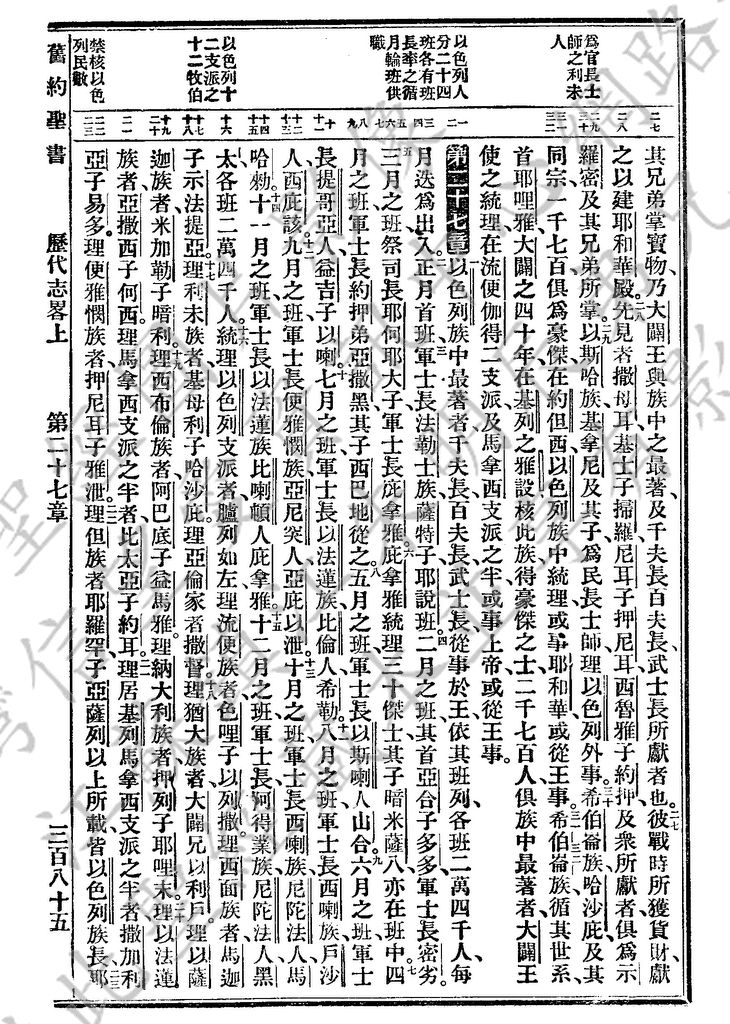 爲官長士
師之利未
人
以色列人
分二十四
班各有班
長率之循
月輪班供
職
以色列十
二支派之
十二牧伯
禁核以色
列民數
其兄弟掌寶物乃大闢王與族中之最著及千夫長百夫長武士長所獻者也彼戰時所獲貨財獻
之以建耶和華殿先見者撒母耳基士子掃羅尼耳子押尼耳西魯雅子約押及衆所獻者俱爲示
羅密及其兄弟所掌以斯哈族基拿尼及其子爲民長士師理以色列外事希伯崙族哈沙庇及其
同宗一千七百俱爲豪傑在約但西以色列族中統理或事耶和華或從王事希伯崙族循其世系
首耶哩雅大闢之四十年在基列之雅設核此族得豪傑之士二千七百人俱族中最著者大闢王
使之統理在流便伽得二支派及馬拿西支派之半或事上帝或從王事
第二十七章以色列族中最著者千夫長百夫長武士長從事於王依其班列各班二萬四千人每
月迭爲出入正月首班軍士長法勒士族薩特子耶說班二月之班其首亞合子多多軍士長密劣
三月之班祭司長耶何耶大子軍士長庇拿雅庇拿雅統理三十傑士其子暗米薩八亦在班中四
月之班軍士長約押弟亞撒黑其子西巴地從之五月之班軍士長以斯喇人山合六月之班軍士
長提哥亞人益吉子以喇七月之班軍士長以法蓮族比倫人希勒八月之班軍士長西喇族戶沙
人西庇該九月之班軍士長便雅憫族亞尼突人亞庇以泄十月之班軍士長西喇族尼陀法人馬
哈勑十一月之班軍士長以法蓮族比喇頓人庇拿雅十二月之班軍士長阿得業族尼陀法人黑
太各班二萬四千人統理以色列支派者臚列如左理流便族者色哩子以列撒理西面族者馬迦
子示法提亞理利未族者基母利子哈沙庇理亞倫家者撒督理猶大族者大闢兄以利戶理以薩
迦族者米加勒子暗利理西布倫族者阿巴底子益馬雅理納大利族者押列子耶哩末理以法蓮
族者亞撒西子何西理馬拿西支派之半者比太亞子約耳理居基列馬拿西支派之半者撒加利
亞子易多理便雅憫族者押尼耳子雅泄理但族者耶羅罕子亞薩列以上所載皆以色列族長耶
舊約聖書　歷代志畧上　第二十七章　三百八十五